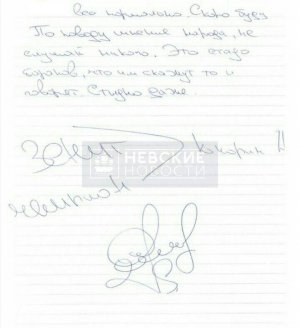 все нормально. Скоро буду
По поводу мнение народа, не
слушай никого. Это стадо
баранов, что им скажут то и
говорят Стыдно даже.
Зенит Кокорин
НЕВСКИЕ
НОВОСТИ
чемпион